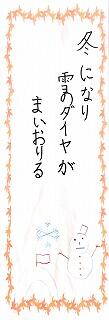 冬になり
雪のダイヤが
まいおりる